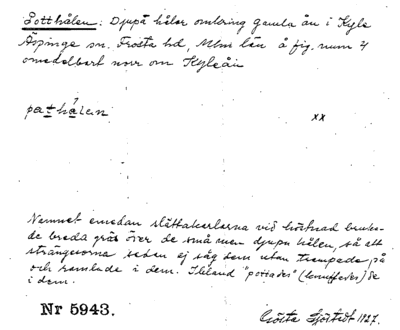 Potthålen: Djupt hålor omkring gamla ån i Kyle
Äspinge sn. Frosta hd, Mlm län å fig. num 4
omedelbart norr om Kyleån
pathålen
xx
Namnet emedan slåttakarlarna vid höstnad bruka-
de breda gräs över de små men djupa hålen, så att
strängarna sedan ej såg dem utan trampade på
och ramlade i dem. Ibland "pottades" (knuffades) de
i dem.
Nr 5943.
Gösta Sjöstedt 1927.